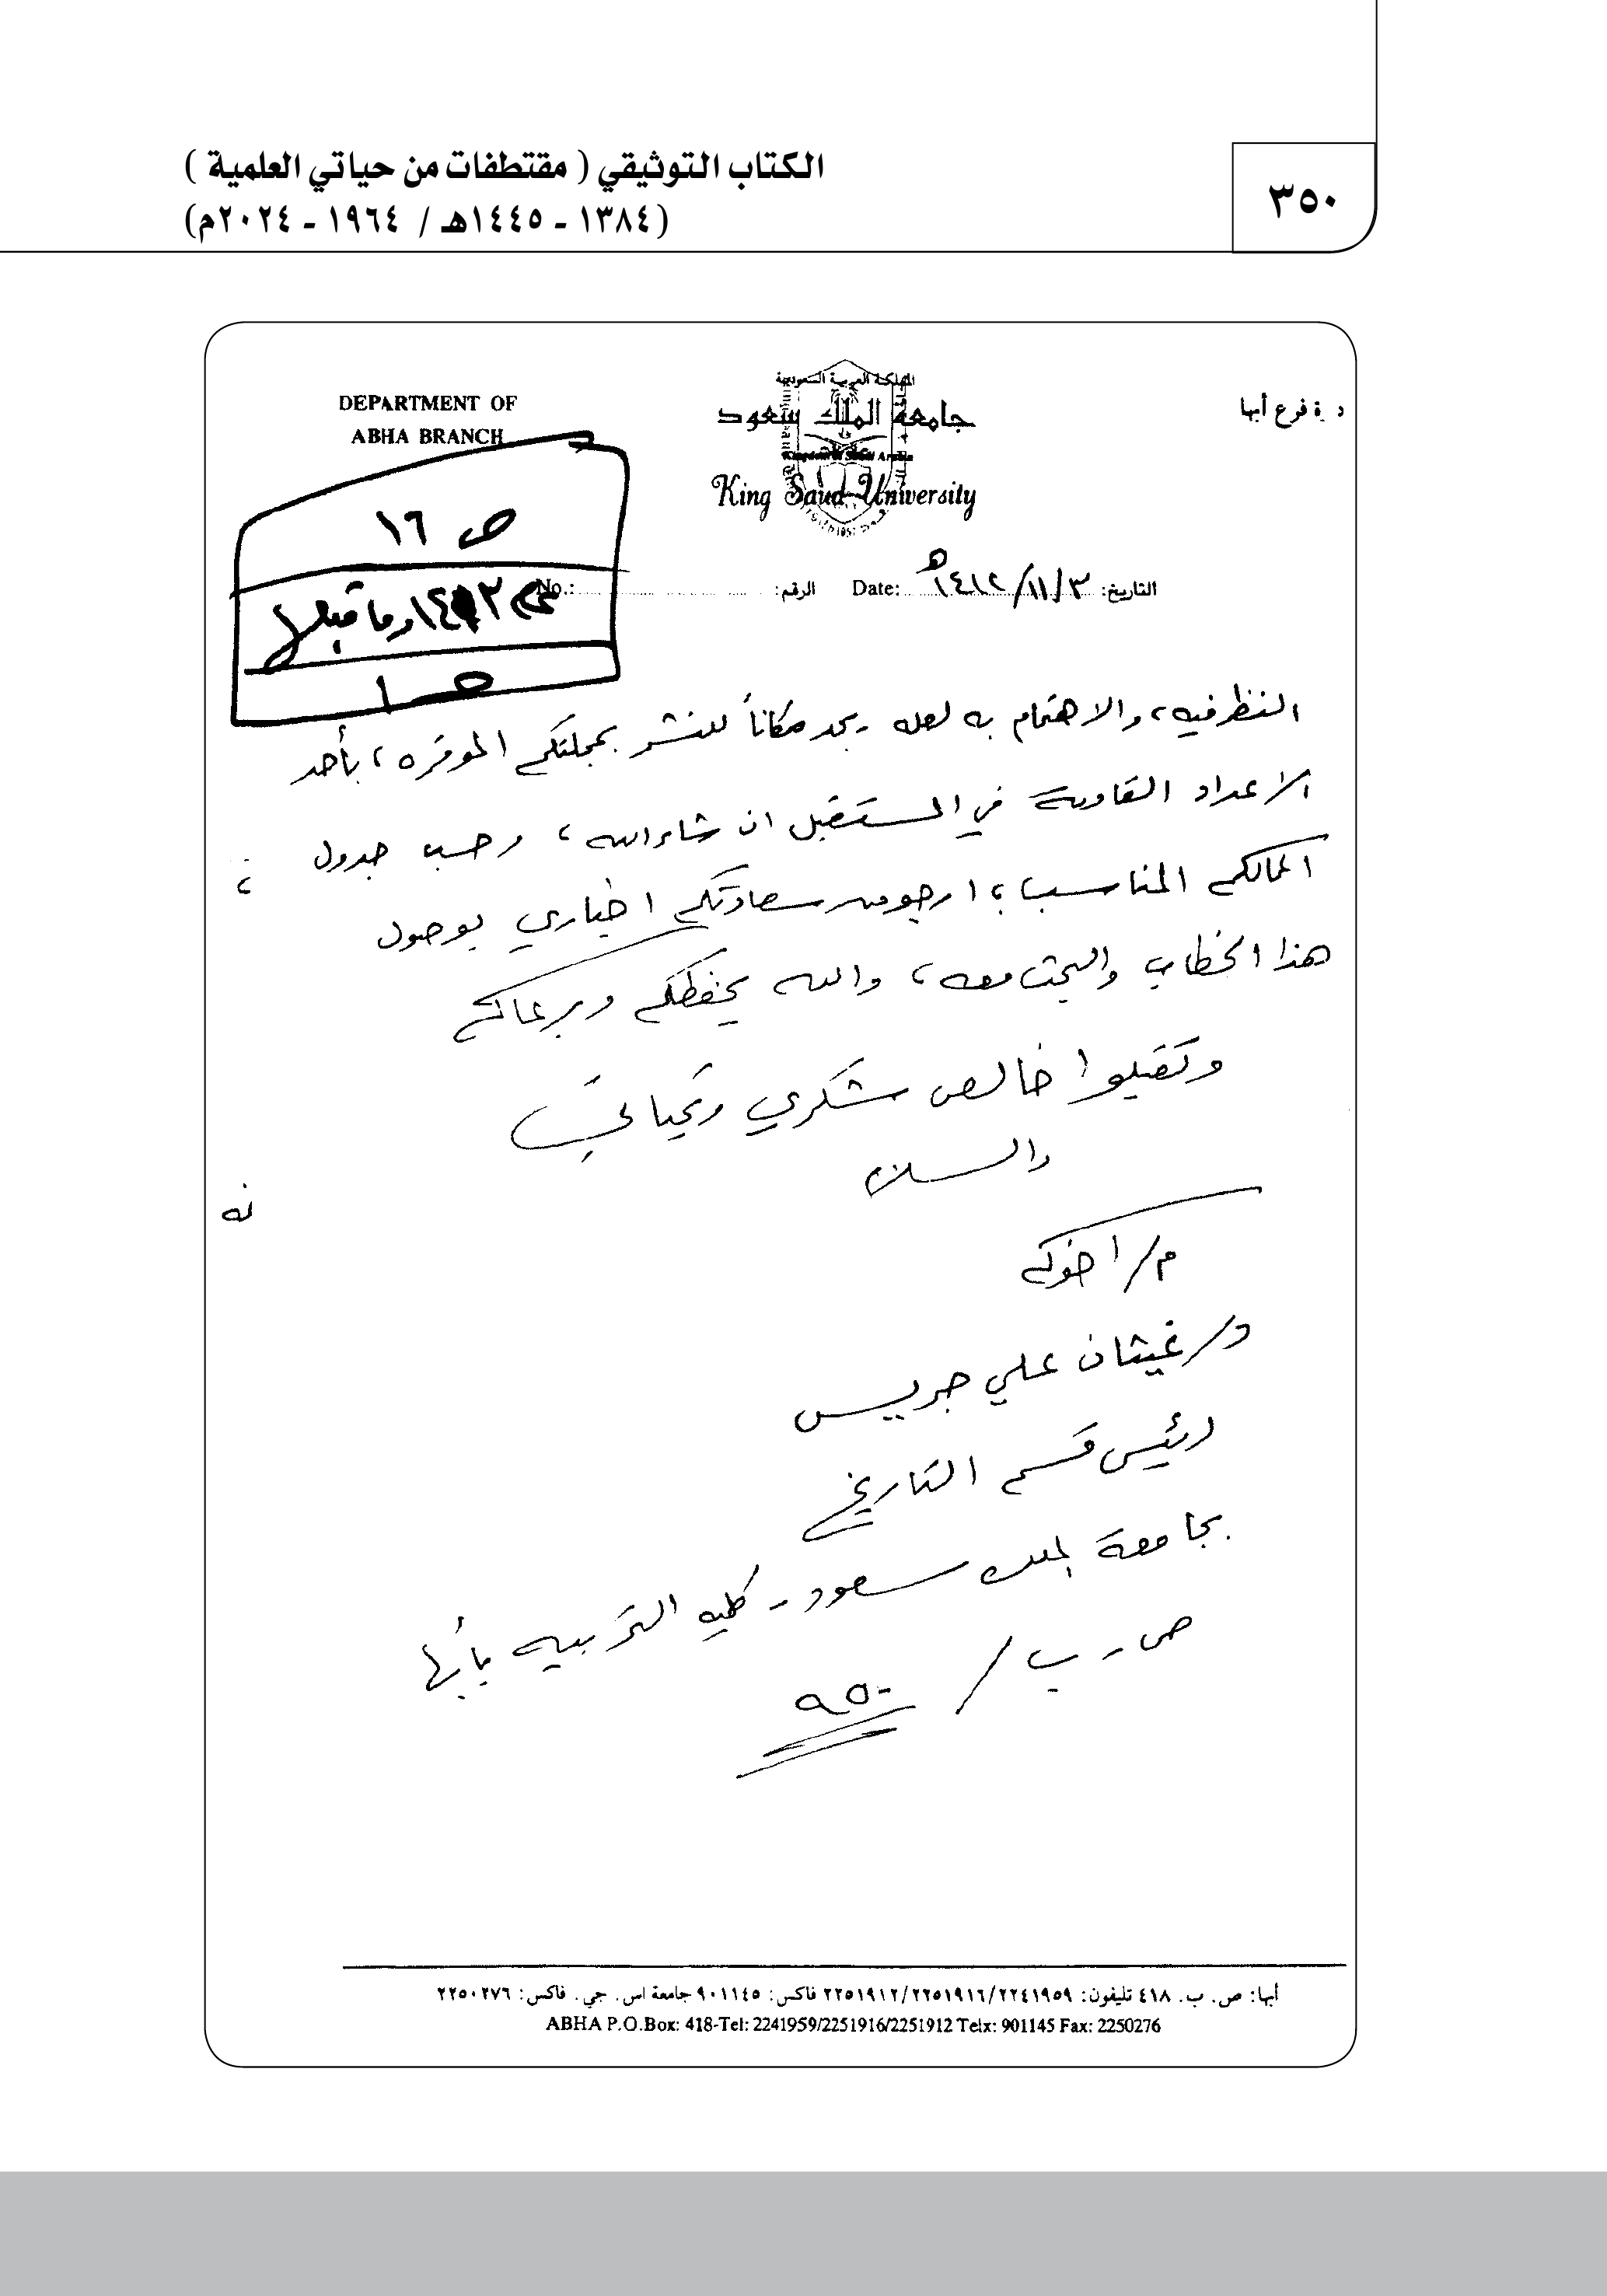 ٣٥٠
الكتاب التوثيقي ( مقتطفات من حياتي العلمية )
(١٣٨٤ - ١٤٤٥هـ / ١٩٦٤ - ٢٠٢٤م)
DEPARTMENT OF
ABHA BRANCH
المملكة العربية السعودية
جامعة الملك سعود
Kingdom of Saudi Arabia
King Saud University
فرع أبها
ص ١٦
التاريخ: ١٤١٢/١١/٣هـ Date:
الرقم: No.:
١٤١٢ وما قبل
ص ١
النظر فيه، والاهتمام به لعله يجد مكاناً للنشر بمجلتكم الموقره، بأحد
الاعداد القادمة في المستقبل ان شاء الله، وحسب جدول
المناسب، ارجو من سعادتكم اخباري بوصول
هذا الخطاب والبحث معه، والله يحفظكم ويرعاكم
وتقبلوا خالص شكري وتحياتي
والسلام
م/ اخوكم
د/ غيثان علي جريس
رئيس قسم التاريخ
بجامعة الملك سعود - كليه التربيه بأبها
ص - ب / ٩٥٠
أبها: ص. ب. ٤١٨ تليفون: ٢٢٤١٩٥٩/٢٢٥١٩١٦/٢٢٥١٩١٢ فاكس: ٩٠١١٤٥ جامعة اس. جي. فاكس: ٢٢٥٠٢٧٦
ABHA P.O.Box: 418-Tel: 2241959/2251916/2251912 Telx: 901145 Fax: 2250276